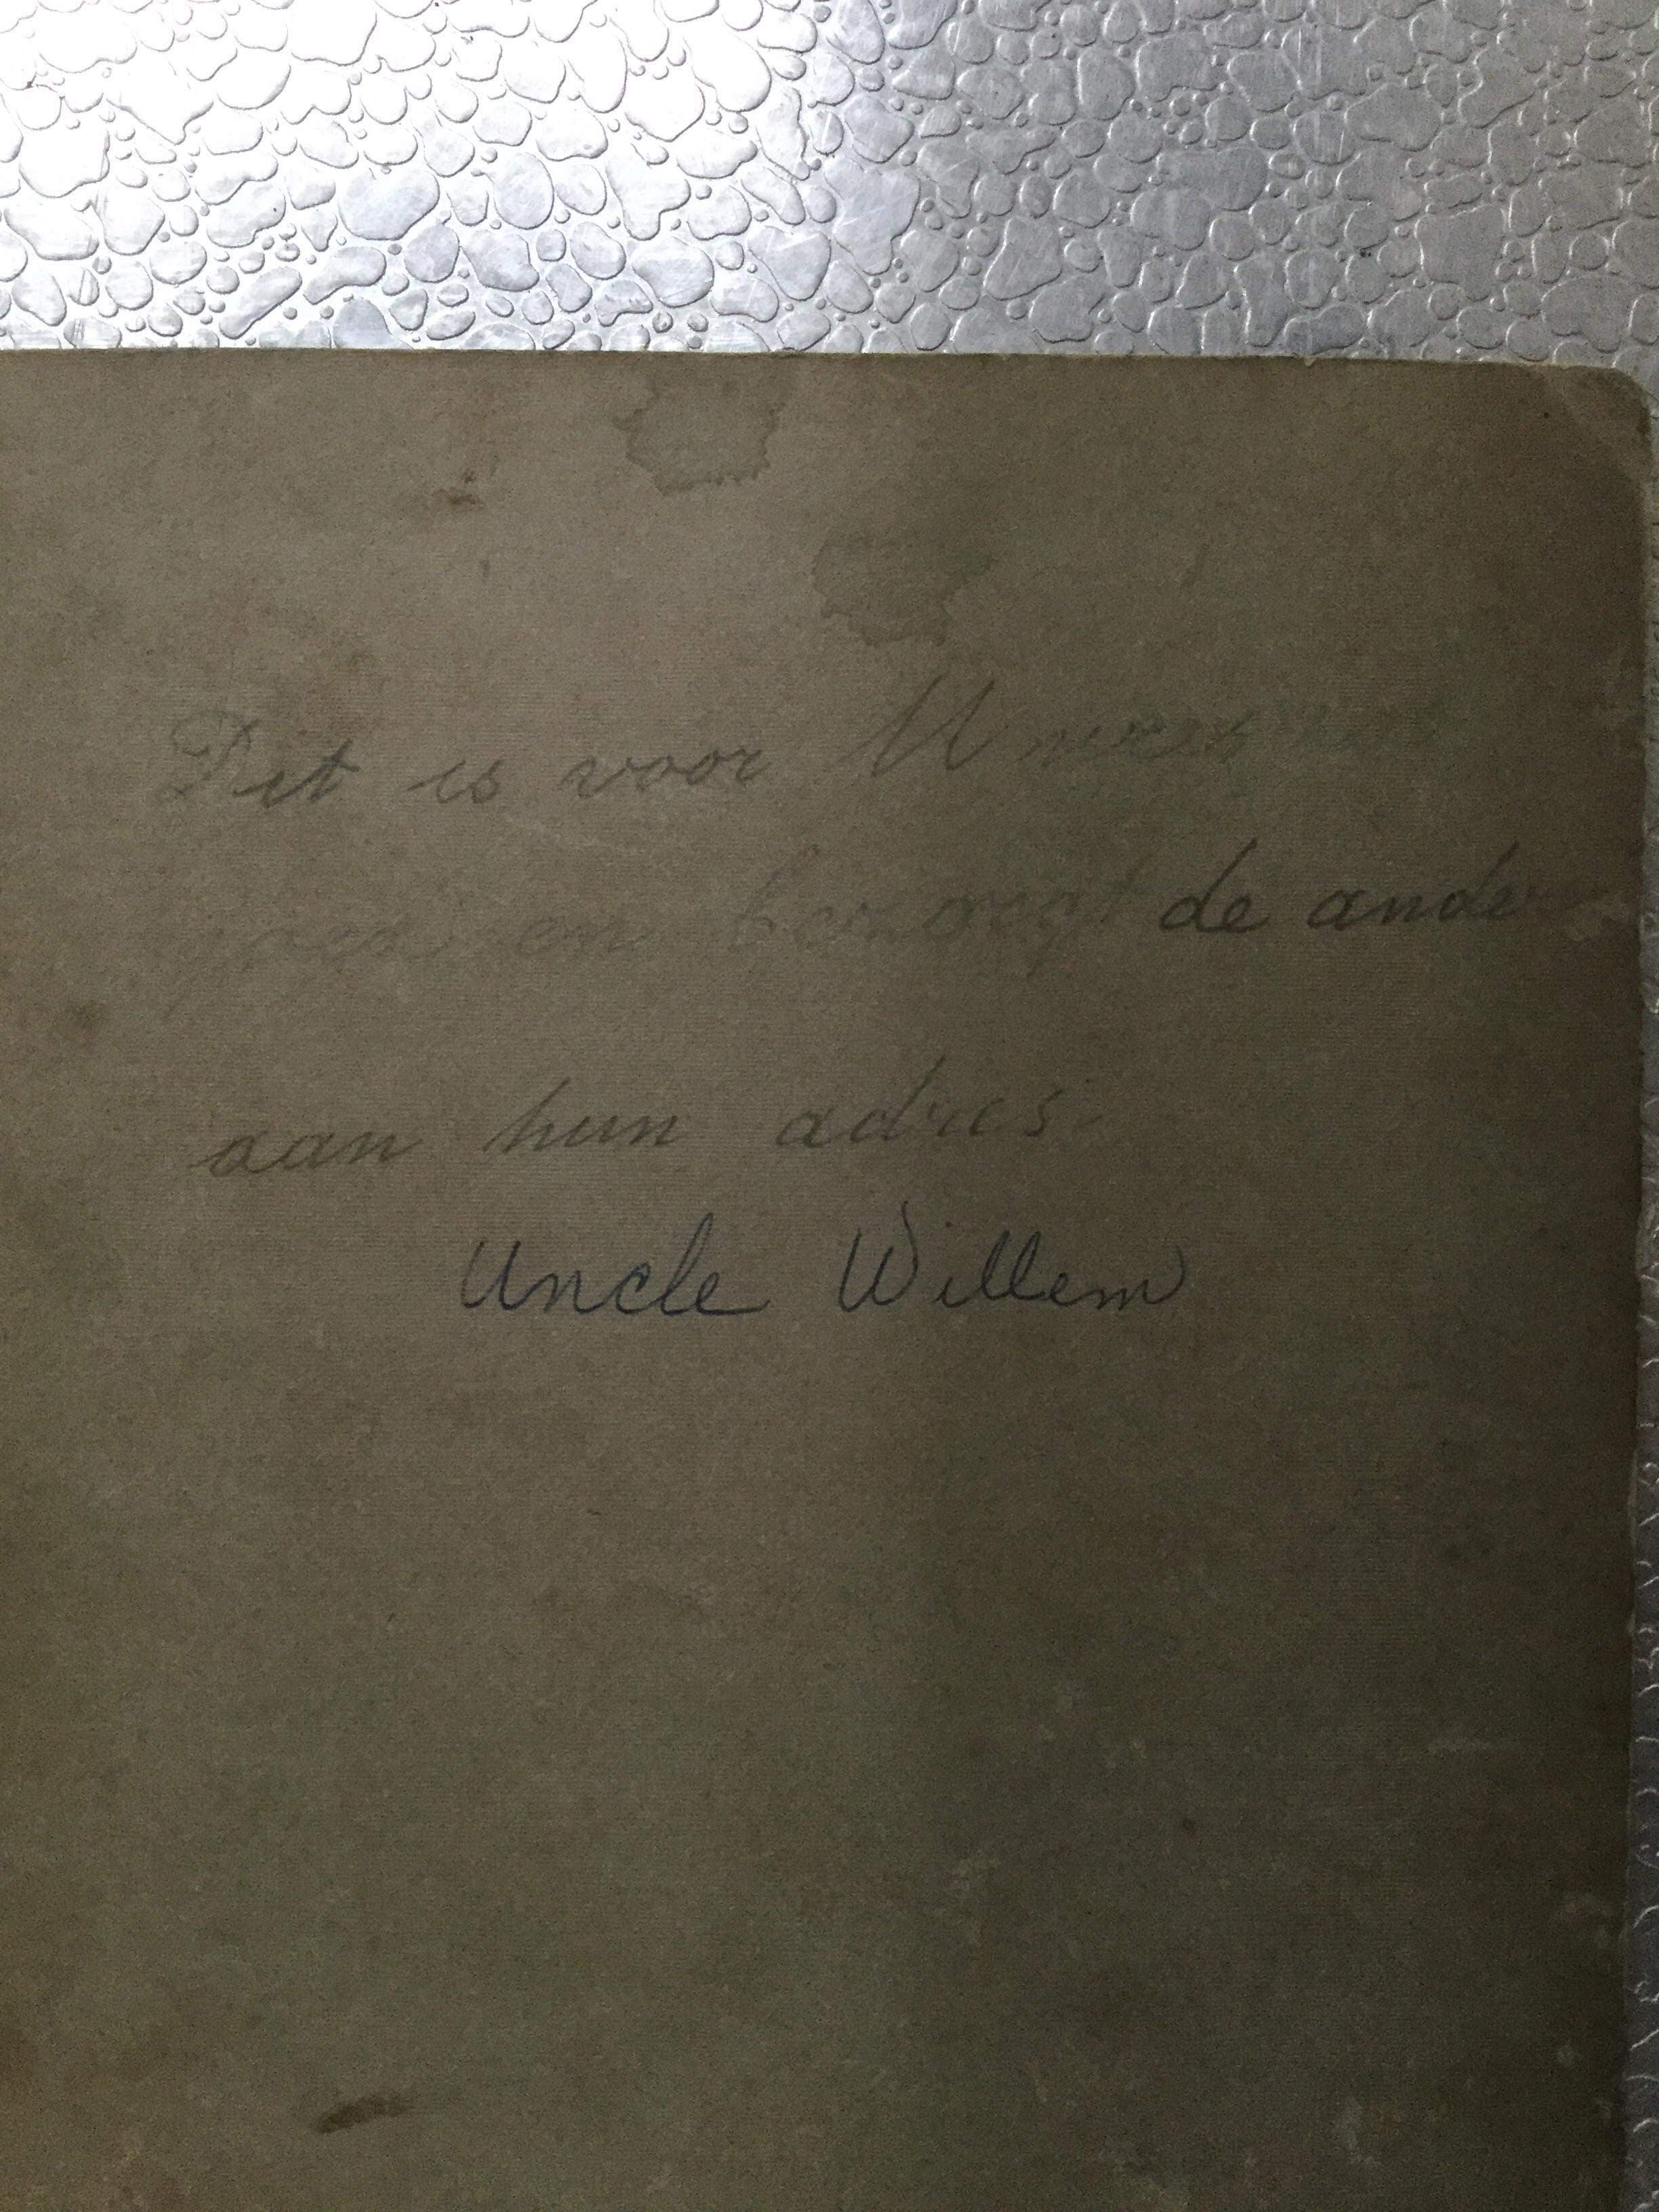 Dit is voor
en bezorgt de ander
aan hun adres
Uncle Willem